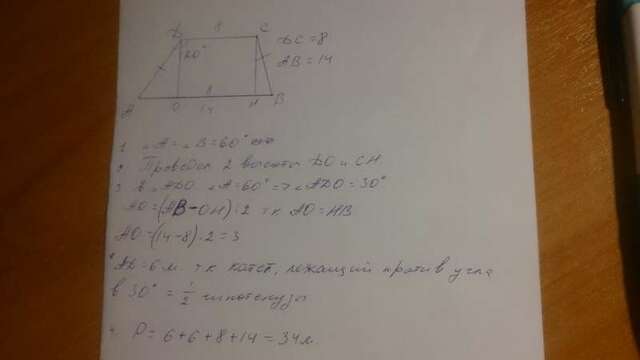 D 8 C
DC = 8
120°
AB = 14
A O 14 H B
1. ∠A = ∠B = 60°
2. Проведем 2 высоты DO и CH
3. В △ADO ∠A = 60° => ∠ADO = 30°
AO = (AB - OH) : 2 т к AO = HB
AO = (14 - 8) : 2 = 3
AD = 6 м. т к катет, лежащий против угла
в 30° = 1/2 гипотенузы
4. P = 6 + 6 + 8 + 14 = 34 м.